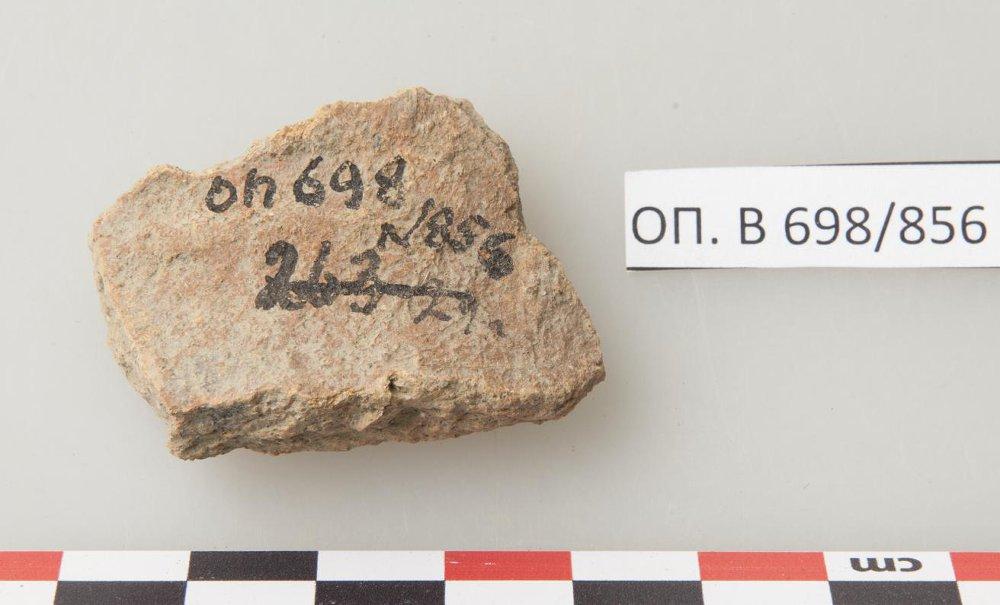 оп 698
N 856
263
ОП. В 698/856
cm